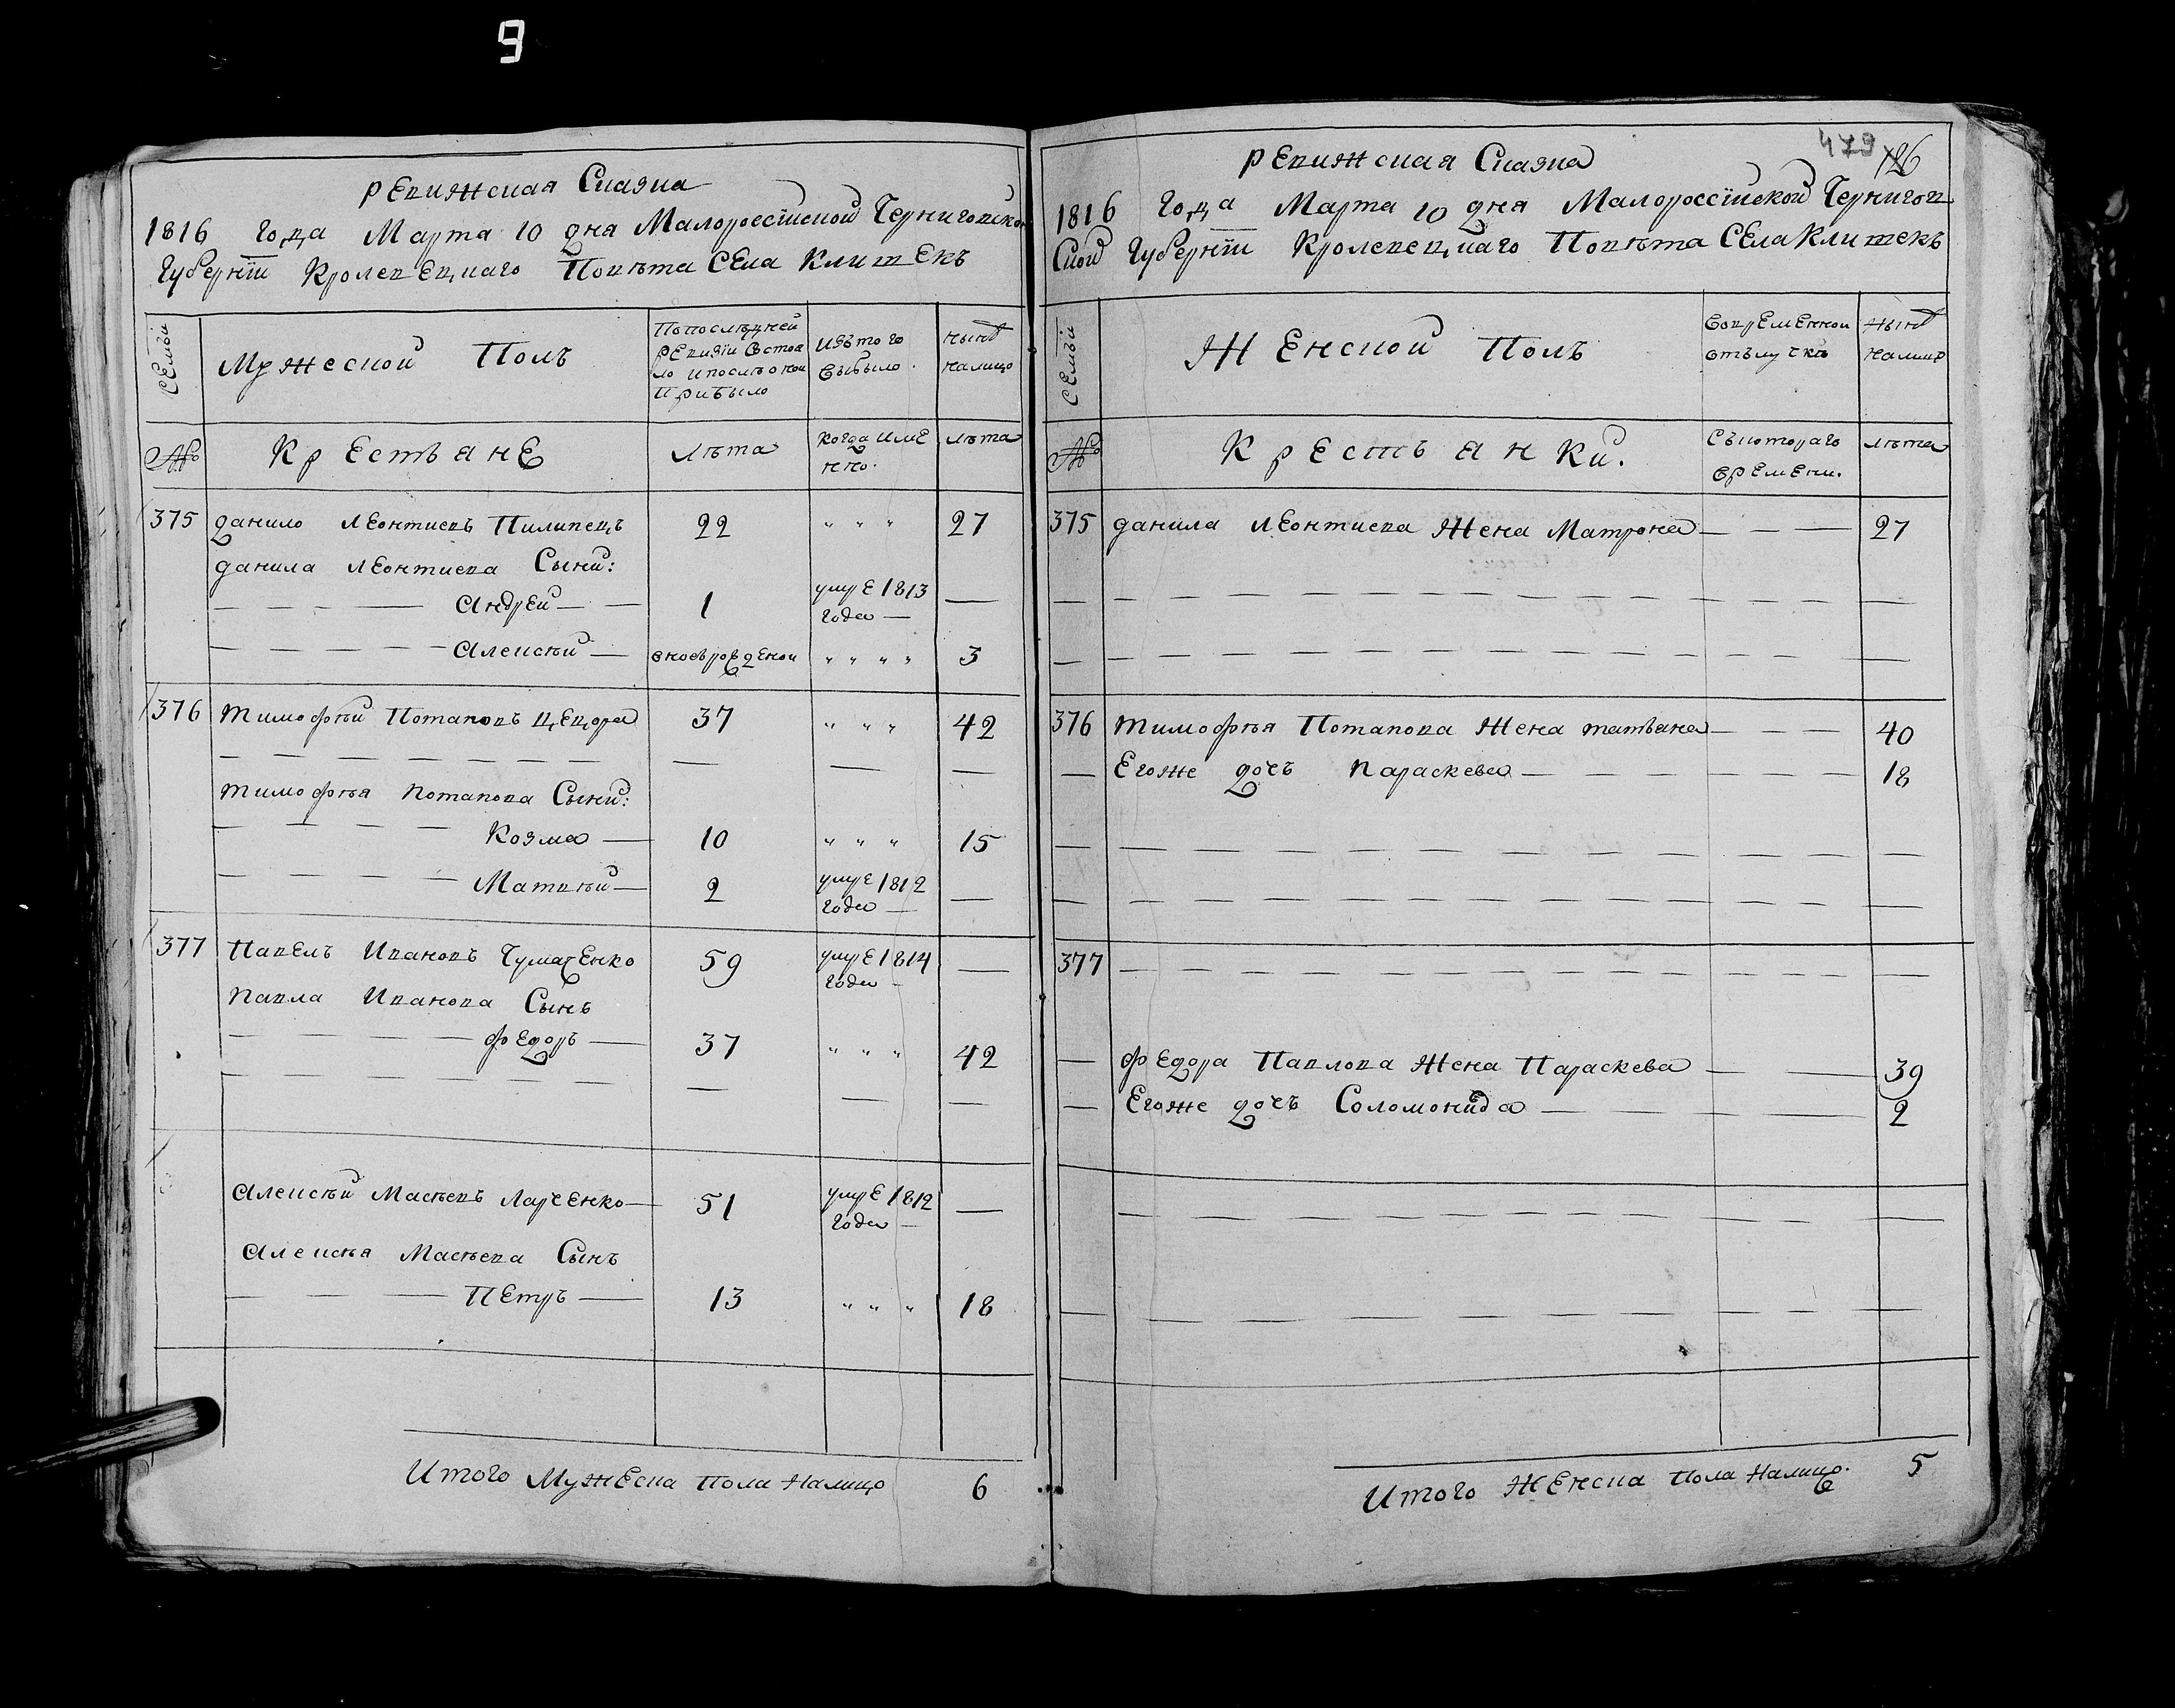 9
Ревижская Сказка
1816 года Марта 10 дня Малороссїйской Черниговской
Губернїи Кролевецкаго Повѣта Села Клишекъ
Семьи
Мужеской Полъ
Попослѣдней
ревизїи состоя
ло ипослѣ оной
прибыло
Изътого
выбыло.
Нынѣ
налицо
№
Крестьяне
лѣта
Когда име
нно.
лѣта
375 Данило Леонтиевъ Пилипецъ 22 " " " 27
Данила Леонтиева Сыни:
Андрей 1 умре 1813
года —
Алексѣй вновьрожденой " " " " 3
376 Тимофѣй Потаповъ Цецора 37 " " " 42
Тимофѣя Потапова Сыни:
Козма 10 " " " 15
Матвѣй 2 умре 1812
года —
377 Павелъ Ивановъ Чумаченко 59 умре 1814
года —
Павла Иванова Сынъ
Федоръ 37 " " " 42
Алексѣй Масѣевъ Ларченко 51 умре 1812
года —
Алексѣя Масѣева Сынъ
Петръ 13 " " " 18
Итого Мужеска пола налицо 6
479
126
Ревижская Сказка
1816 года Марта 10 дня Малороссїйской Чернигов
ской Губернїи Кролевецкаго Повѣта Села Клишекъ
Семьи
Женской Полъ
Вовременной
отълучкѣ
Нынѣ
налицо
№
Крестьянки.
Съкотораго
времени.
лѣта
375 Данила Леонтиева Жена Матрона — — — 27
376 Тимофѣя Потапова Жена татьяна — — — 40
— Егоже дочь Параскева — — — 18
377
— Федора Павлова Жена Параскева — — 39
— Егоже дочь Соломонида — — 2
Итого Женска пола налицо. 5